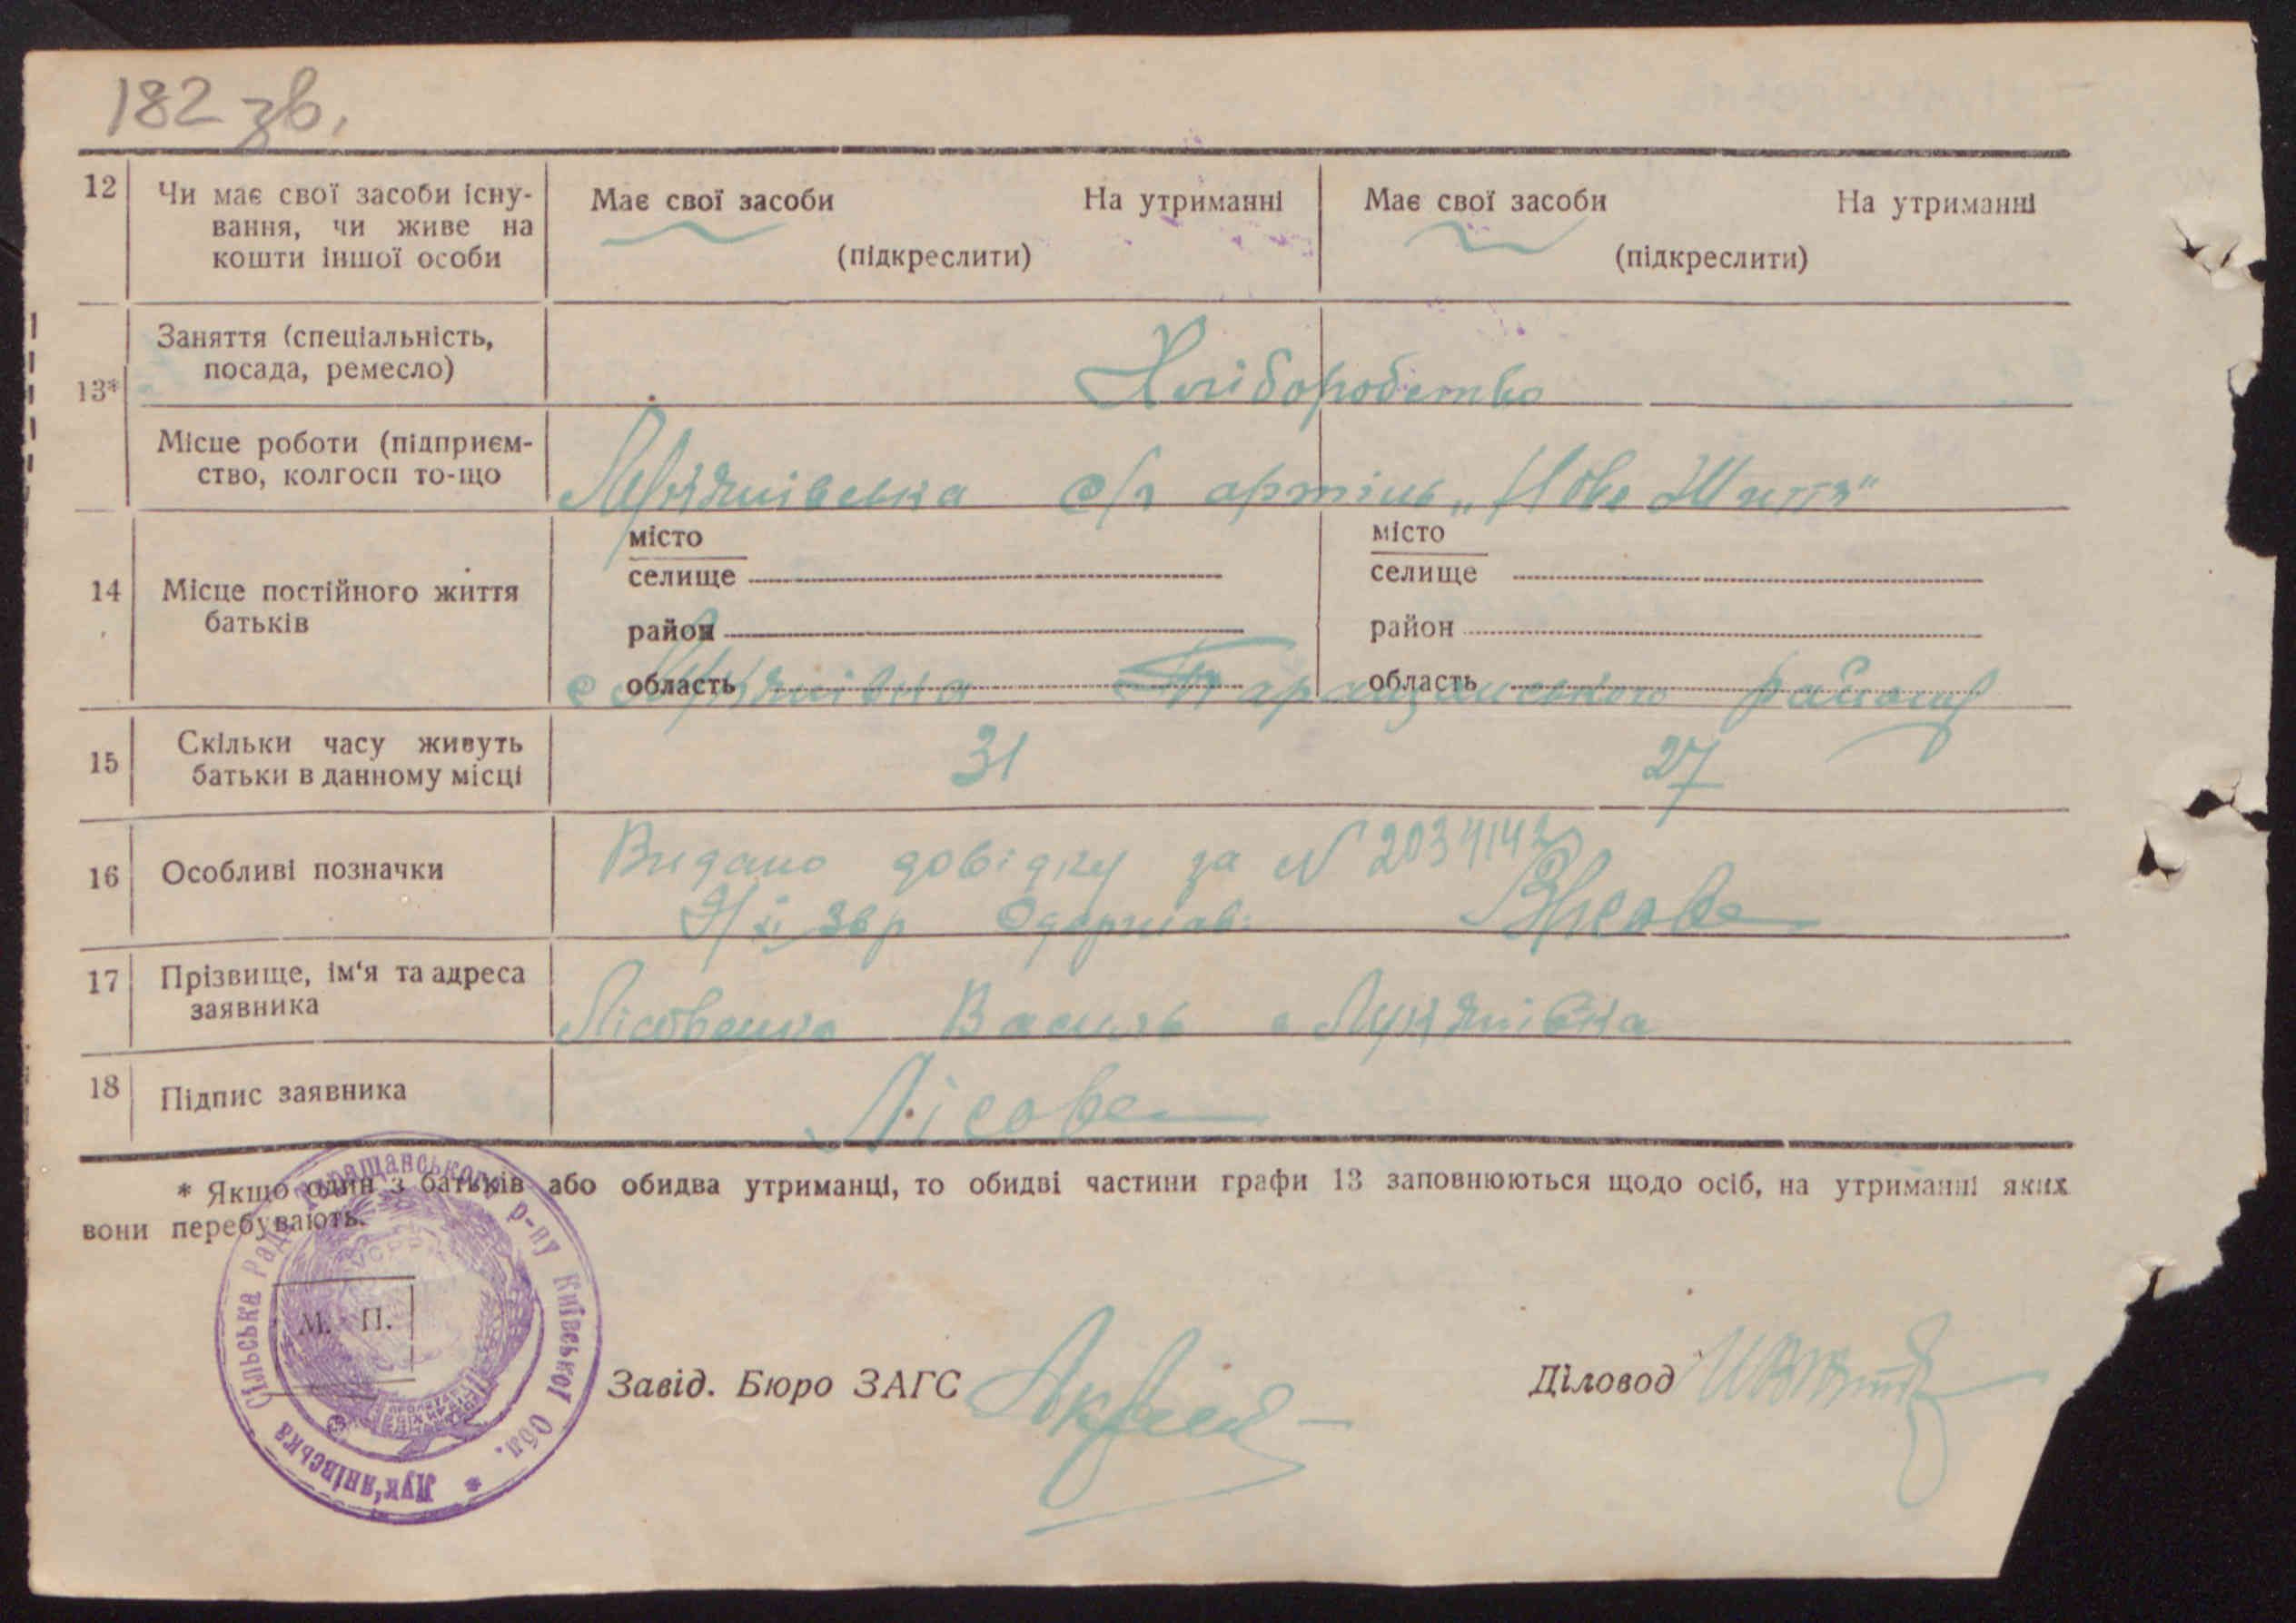 182 зв.
12 Чи має свої засоби існу-
вання, чи живе на
кошти іншої особи
Має свої засоби На утриманні
(підкреслити)
Має свої засоби На утриманні
(підкреслити)
13*
Заняття (спеціальність,
посада, ремесло)
Хліборобство
Місце роботи (підприєм-
ство, колгосп то-що
с/г артіль „Нове Життя"
14 Місце постійного життя
батьків
місто
селище
район
область
місто
селище
район
область
с Таращанського району
15 Скільки часу живуть
батьки в данному місці
31 27
16 Особливі позначки
Видано довідку за N 2034142
17 Прізвище, ім‘я та адреса
заявника
Лісовенко Василь с Лукянівка
18 Підпис заявника
Лісове
* Якщо один з батьків або обидва утриманці, то обидві частини графи 13 заповнюються щодо осіб, на утриманні яких
вони перебувають.
Лук'янівська Сільська Рада Таращанського р-ну Київської Обл. *
УСРР
М. П.
Завід. Бюро ЗАГС
Діловод